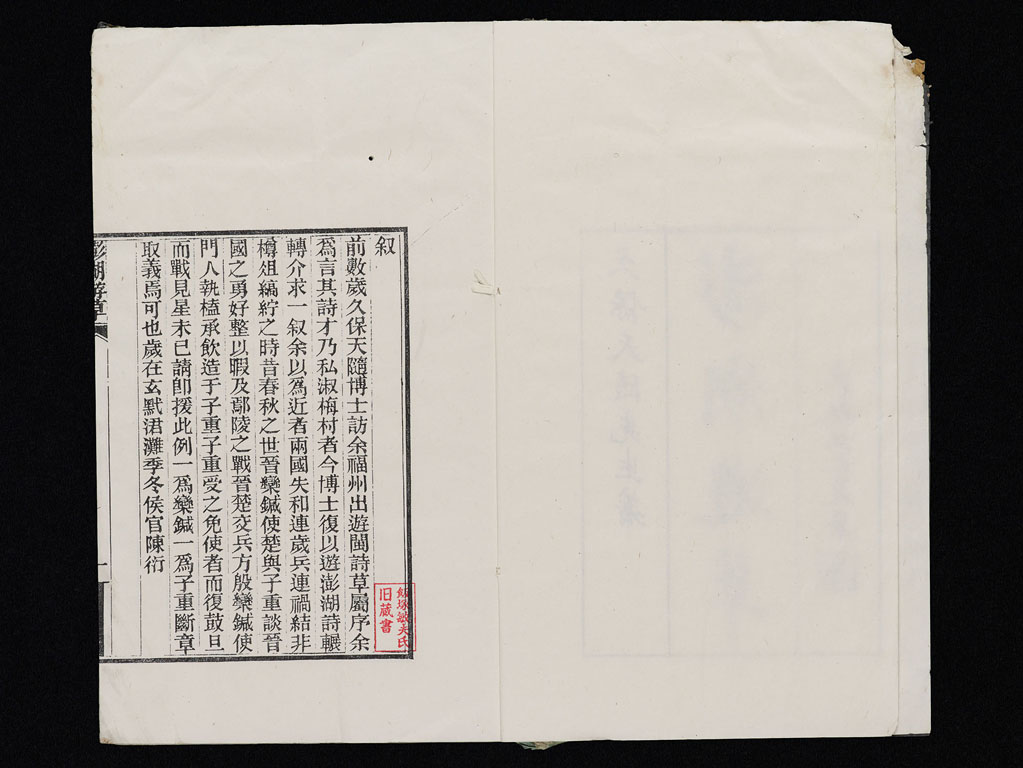 叙
前數歲久保天隨博士訪余福州出遊閩詩草屬序余
爲言其詩才乃私淑梅村者今博士復以遊澎湖詩輾
轉介求一叙余以爲近者兩國失和連歲兵連禍結非
樽俎縞紵之時昔春秋之世晉欒鍼使楚與子重談晉
國之勇好整以暇及鄢陵之戰晉楚交兵方殷欒鍼使
門人執榼承飲造于子重子重受之免使者而復鼓旦
而戰見星未已請卽援此例一爲欒鍼一爲子重斷章
取義焉可也歲在玄黓涒灘季冬侯官陳衍
澎湖游草
一
旧蔵書
久保天隨先生著